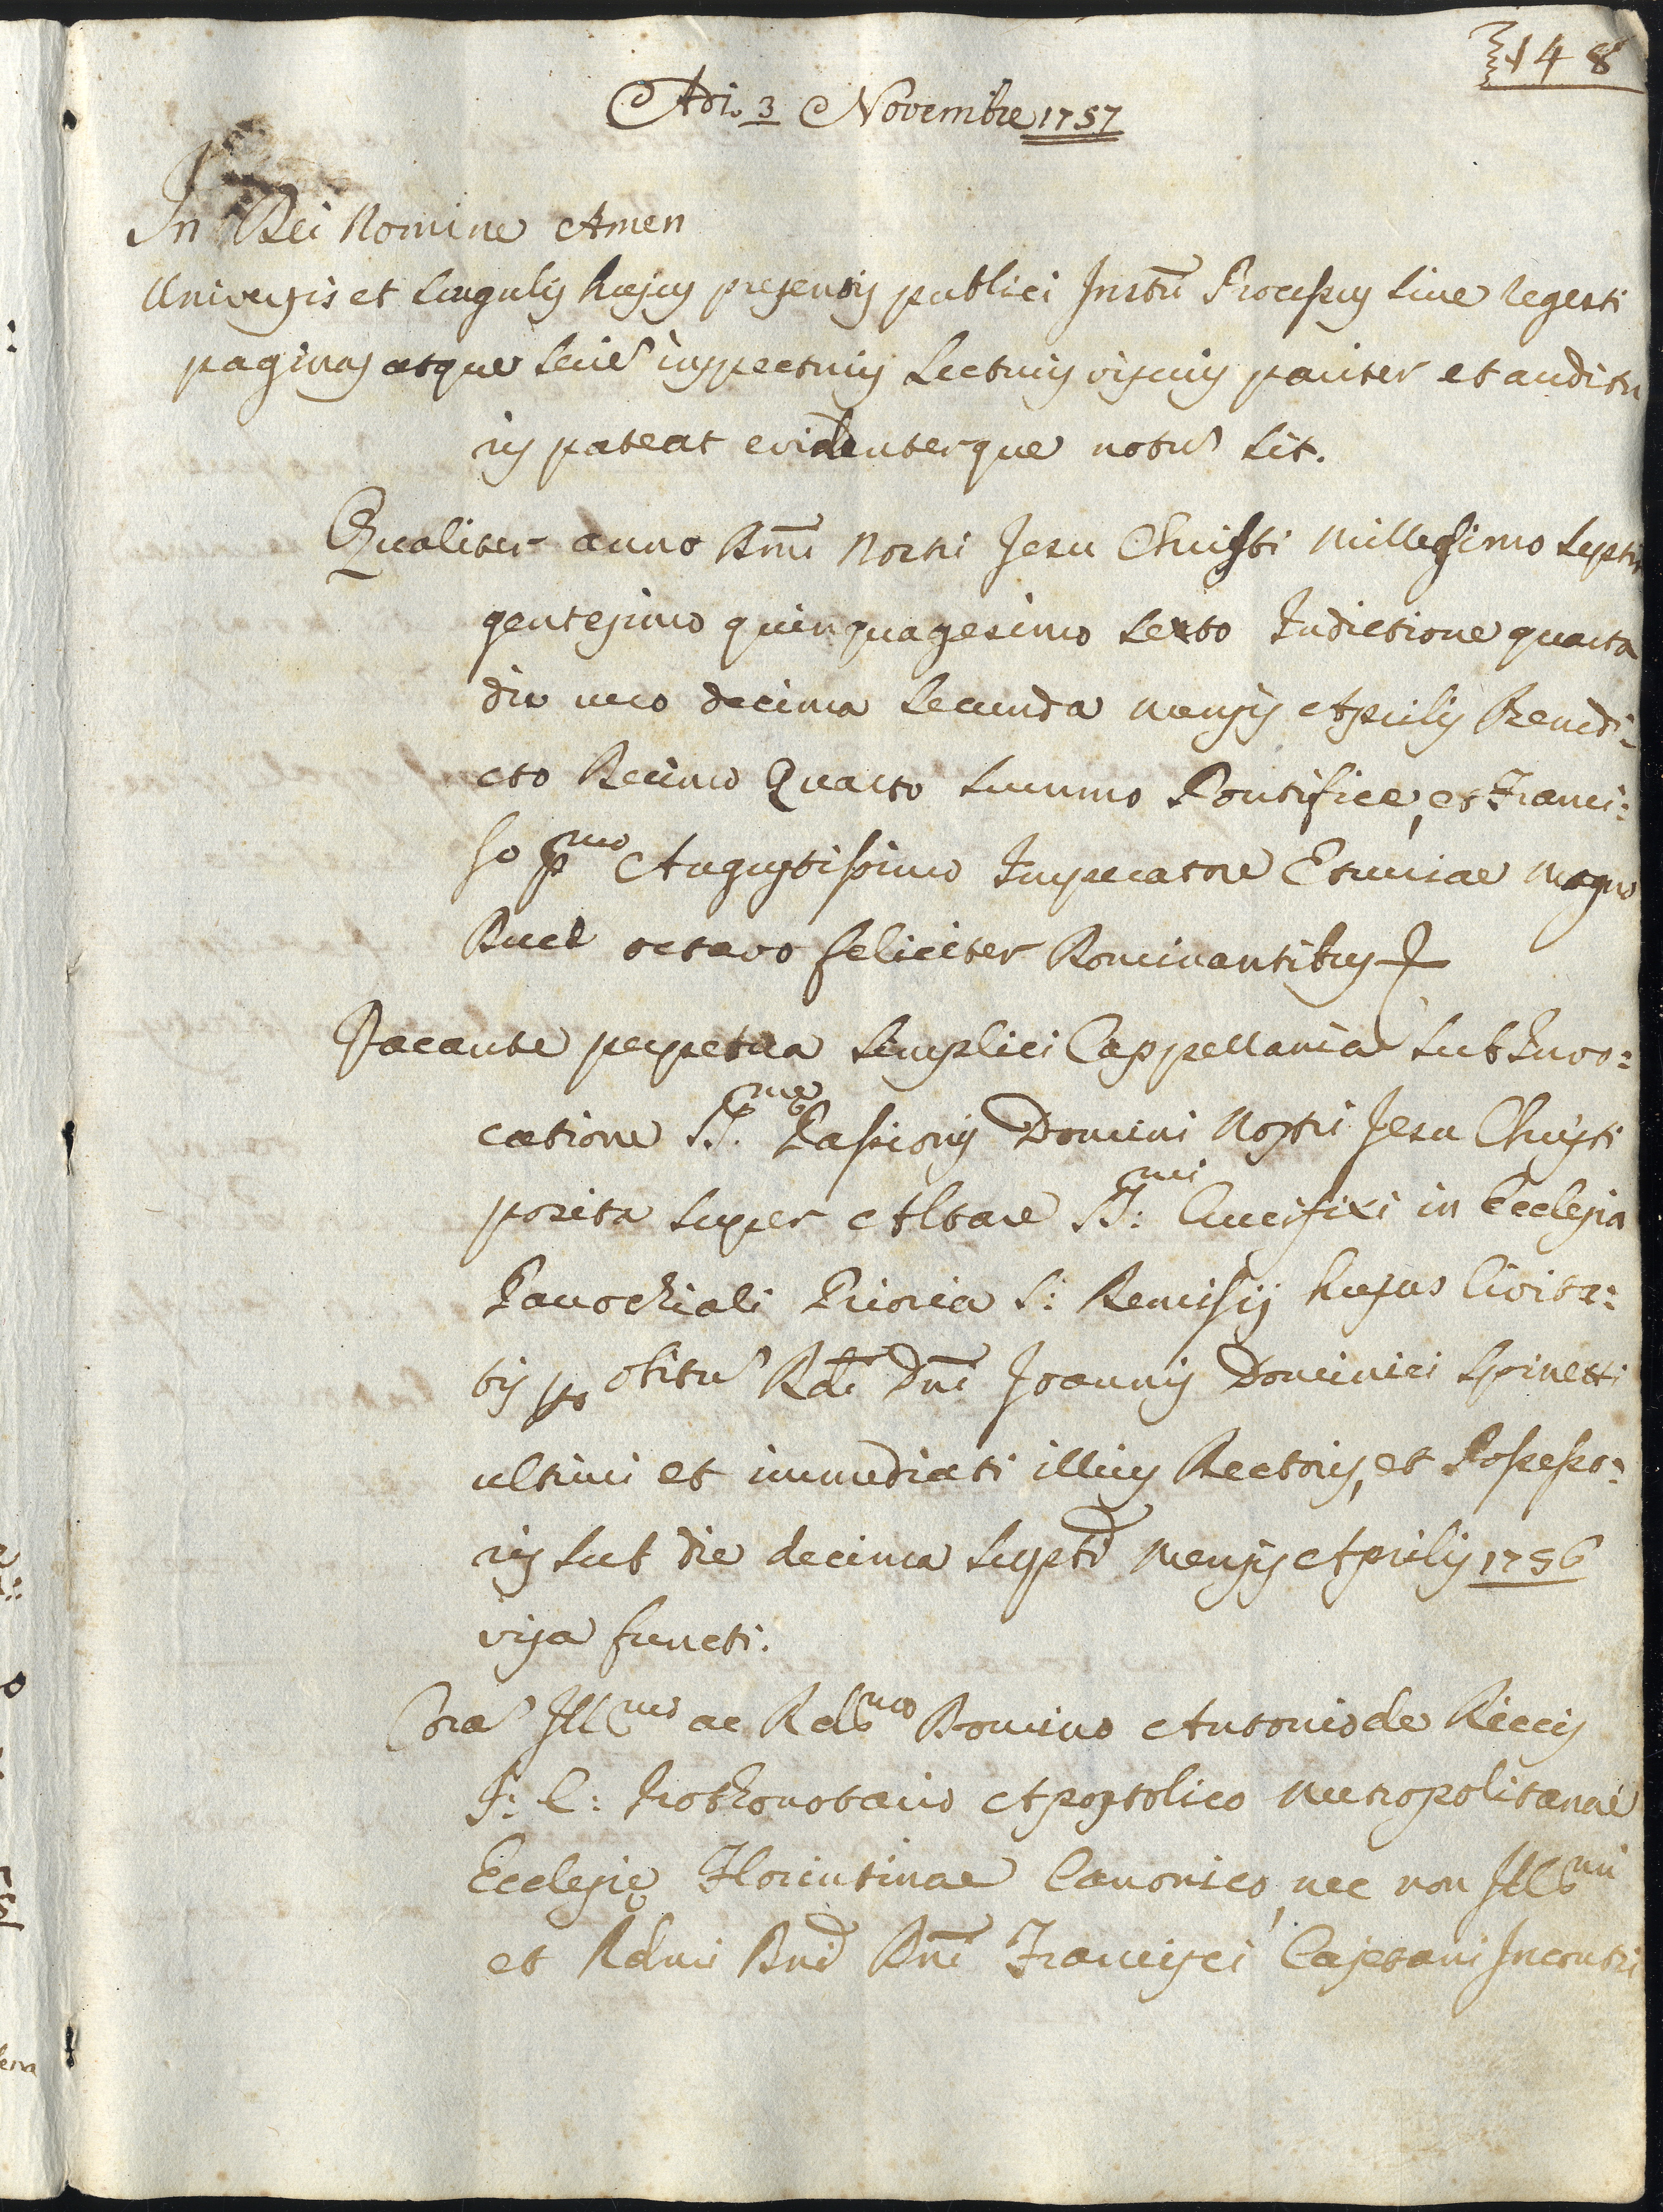 148
Adi. 3 Novembre 1757
In Dei Nomine Amen
Universis et singulis hujus presentis publici Instrũ Processus sive regesti
paginas atque seriẽ inspecturis Lecturis visuris pariter et auditu
ris pateat evidenterque notũ sit.
Qualiter anno Dñi Nostri Jesu Christi Millesimo septin
gentesimo quinquagesimo sexto Indictione quarta
die vero decima secunda mensis Aprilis Benedi:
cto Decimo Quarto summo Pontifice, et Franci:
sco Pmo Augustissimo Imperatore Etruriae Magno
Duce octavo feliciter Dominantibus
Vacante perpetua simplici Cappellania sub Invo:
catione SS.mae Passionis Domini Nostri Jesu Christi
posita super Altare SS:mi Crucifixi in Ecclesia
Parochiali Prioria S: Remisij hujus Civita:
tis po obitũ Rdi Dñi Joannis Dominici Spinetti
ultimi et immediati illius Rectoris, et Possesso:
ris sub die decima suptã mensis Aprilis 1756
visa functi.
Corã Illmo ac Rdmo Domino Antonio de Riccis
J: C: Prothonotario Apostolico Metropolitanae
Ecclesię Florentinae Canonico, nec non Illmi
et Rdmi Dñi Dñi Francisci Cajetani Incontri